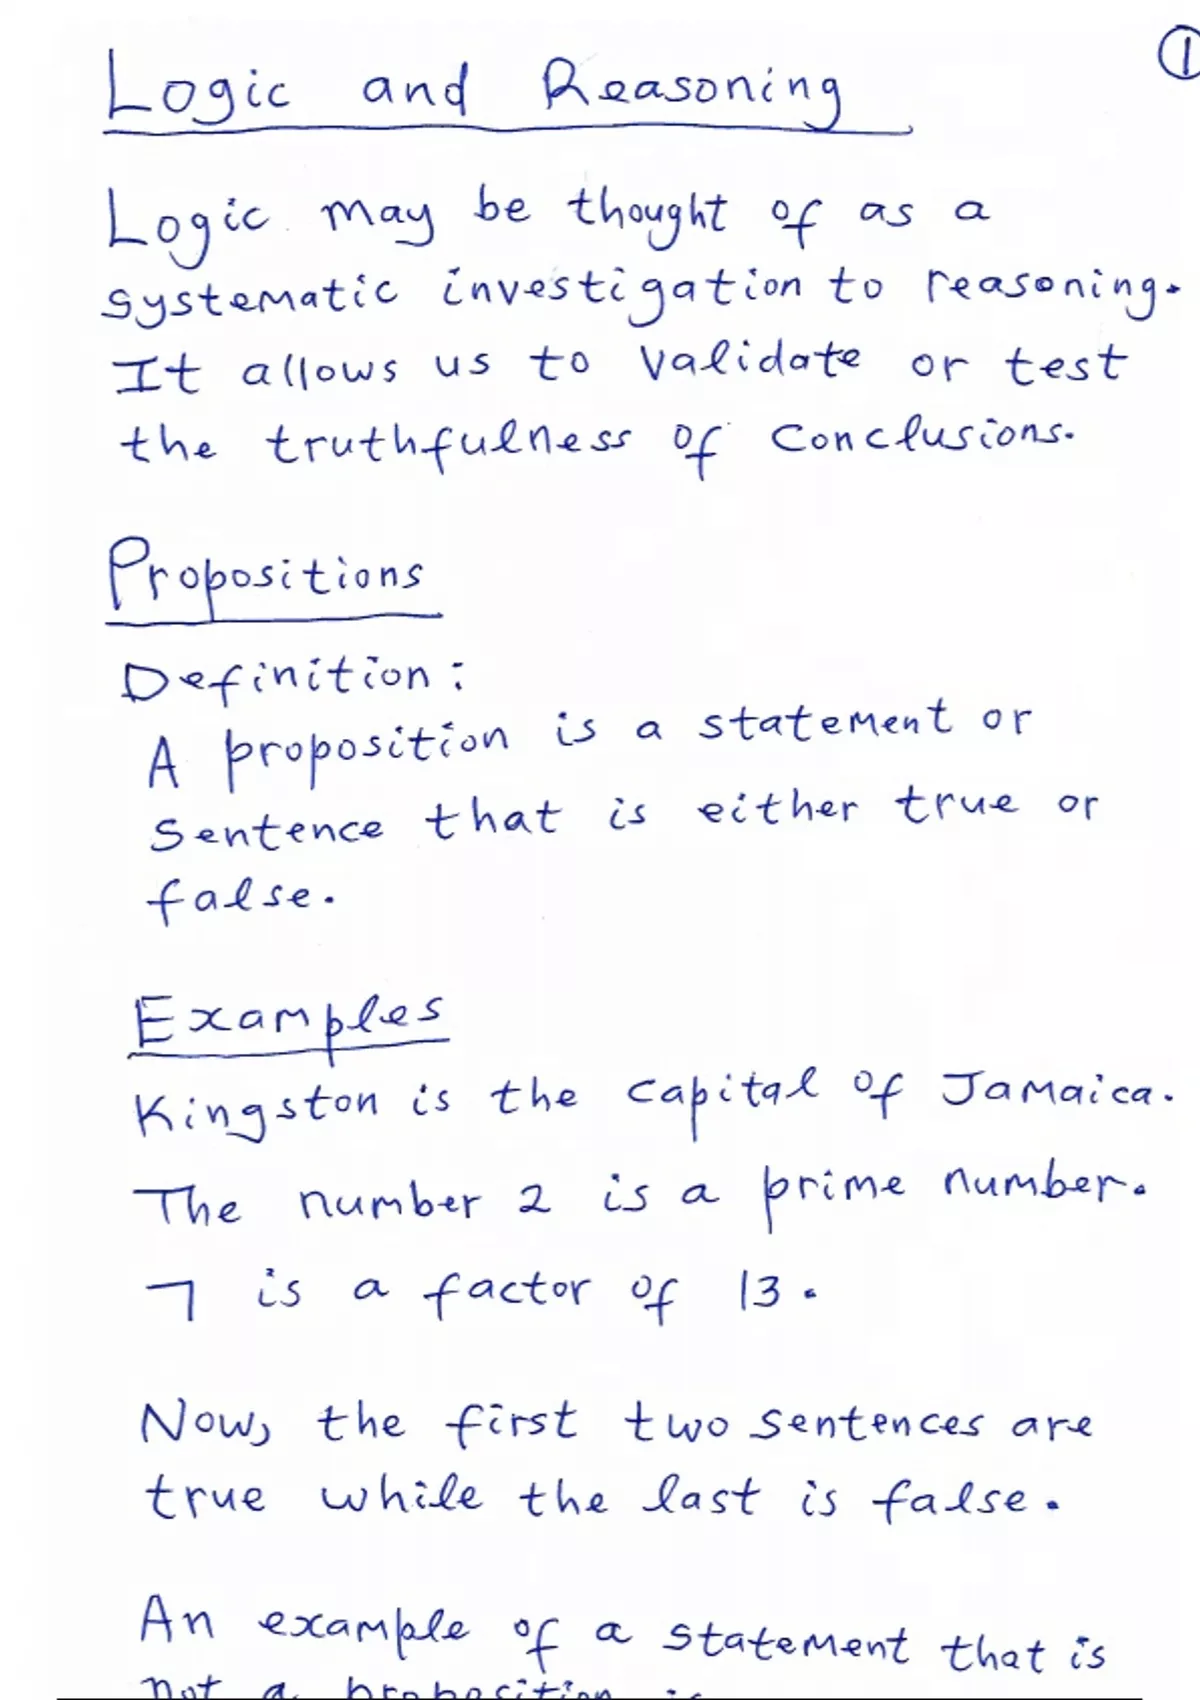 ①
Logic and Reasoning
Logic may be thought of as a
systematic investigation to reasoning.
It allows us to validate or test
the truthfulness of conclusions.
Propositions
Definition:
A proposition is a statement or
sentence that is either true or
false.
Examples
Kingston is the capital of Jamaica.
The number 2 is a prime number.
7 is a factor of 13.
Now, the first two sentences are
true while the last is false.
An example of a statement that is
not a proposition is